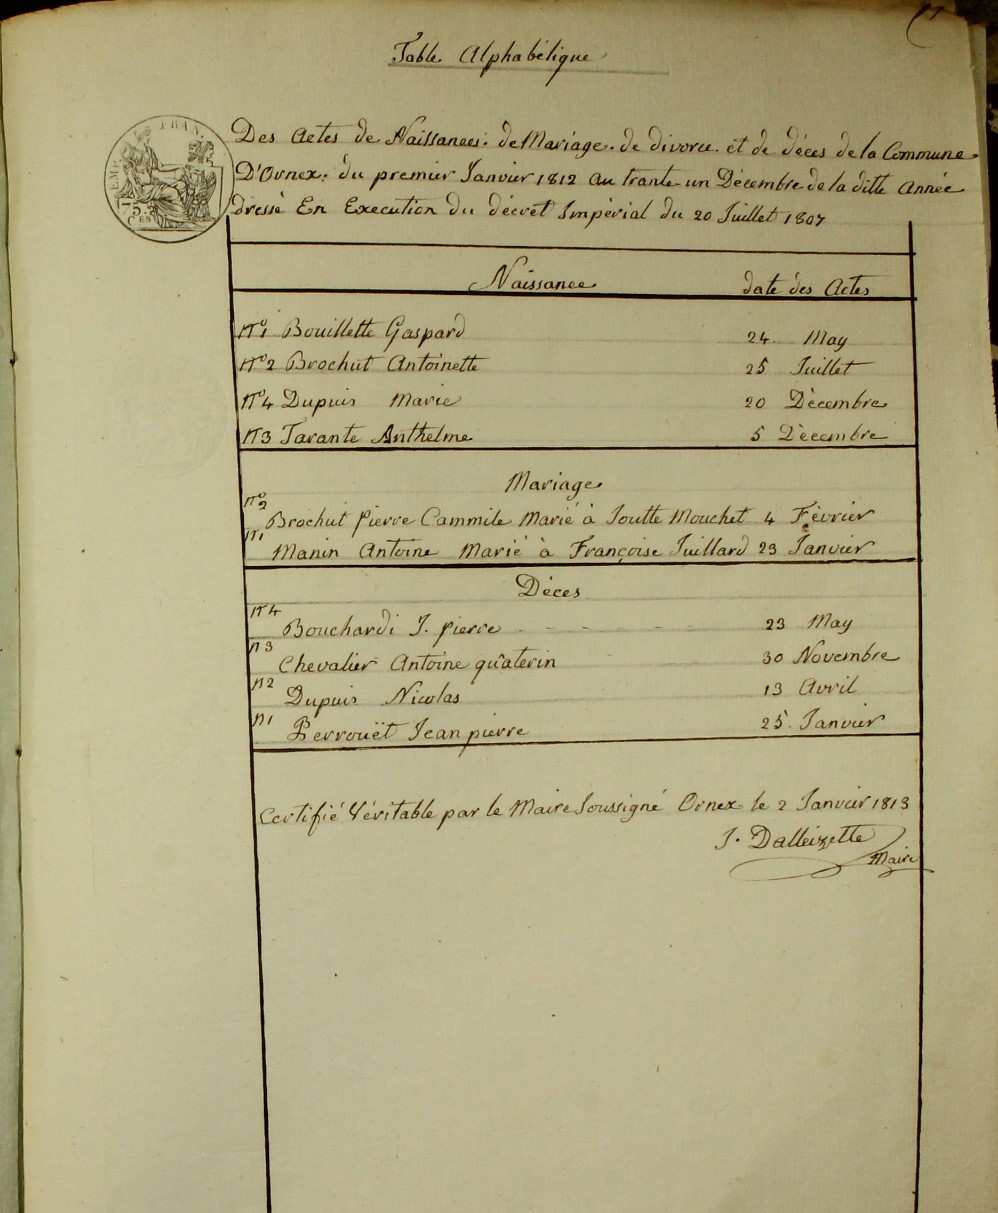 Table Alphabétique
Des Actes de Naissances. de Mariage. de divorce. et de déces de la Commune
D'Ornex. du premier Janvier 1812 au trante-un Décembre de la ditte Année
dressé En Execution du décret Impérial du 20 Juillet 1807
EMP. FRAN.
75.C
CEN.
Naissance date des Actes
N°1 Bouillette Gaspard 24 May
N°2 Brochut Antoinette 25 Juillet
N°4 Dupuis Marie 20 Décembre
N°3 Tarante Anthelme 5 Décembre
Mariage
N°2 Brochut pierre Cammile Marié à Mouchet 4 Février
N1 Manin Antoine Marié à Françoise Juillard 23 Janvier
Déces
N4 Bouchardi J. pierre 23 May
N3 Chevalier Antoine quaterin 30 Novembre
N2 Dupuis Nicolas 13 Avril
N1 Perrouët Jean pierre 25 Janvier
Certifié Véritable par le Maire Soussigné Ornex le 2 Janvier 1813
J. Dalleizette
Maire